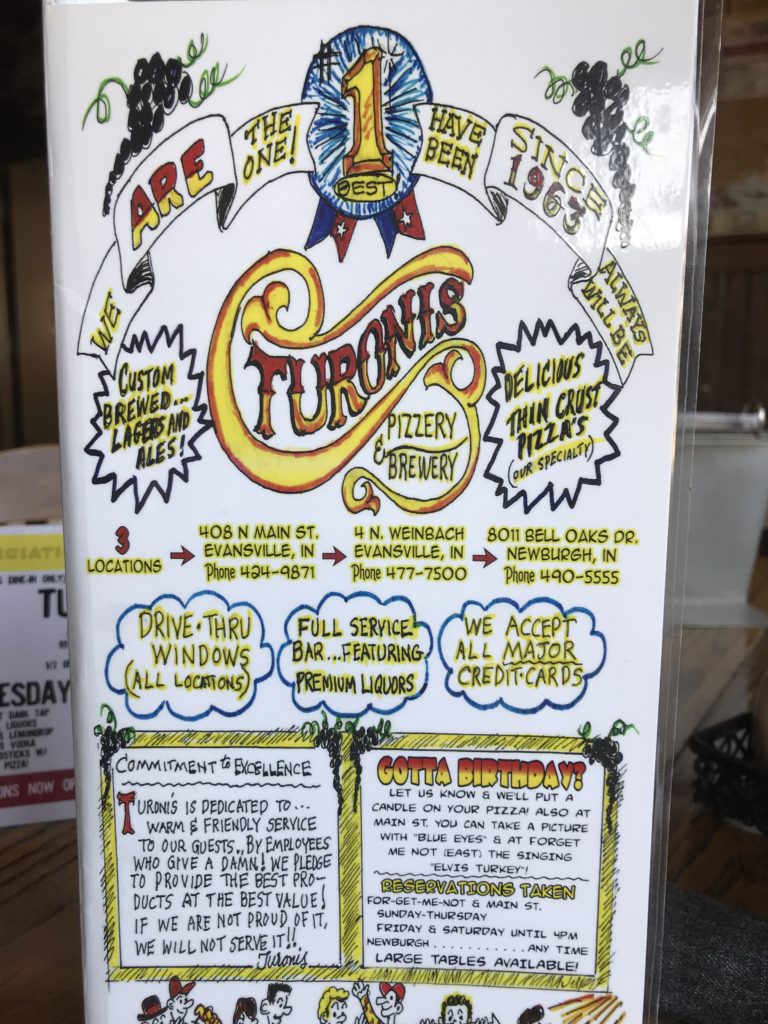 WE ARE THE ONE! #1 BEST HAVE BEEN SINCE 1963 ALWAYS WILL BE
TURONIS
PIZZERY
& BREWERY
CUSTOM
BREWED...
LAGERS AND
ALES!
DELICIOUS
THIN CRUST
PIZZA'S
(OUR SPECIALTY)
3
LOCATIONS
408 N MAIN ST.
EVANSVILLE, IN
Phone 424-9871
4 N. WEINBACH
EVANSVILLE, IN
Phone 477-7500
8011 BELL OAKS DR.
NEWBURGH, IN
Phone 490-5555
DRIVE-THRU
WINDOWS
(ALL LOCATIONS)
FULL SERVICE
BAR...FEATURING
PREMIUM LIQUORS
WE ACCEPT
ALL MAJOR
CREDIT-CARDS
COMMITMENT to EXCELLENCE
TURONI'S IS DEDICATED TO...
WARM & FRIENDLY SERVICE
TO OUR GUESTS.. BY EMPLOYEES
WHO GIVE A DAMN! WE PLEDGE
TO PROVIDE THE BEST PRO-
DUCTS AT THE BEST VALUE!
IF WE ARE NOT PROUD OF IT,
WE WILL NOT SERVE IT!!
Turonis
GOTTA BIRTHDAY?
LET US KNOW & WE'LL PUT A
CANDLE ON YOUR PIZZA! ALSO AT
MAIN ST. YOU CAN TAKE A PICTURE
WITH "BLUE EYES" & AT FORGET
ME NOT (EAST) THE SINGING
"ELVIS TURKEY"!
RESERVATIONS TAKEN
FOR-GET-ME-NOT & MAIN ST.
SUNDAY-THURSDAY
FRIDAY & SATURDAY UNTIL 4PM
NEWBURGH............ANY TIME
LARGE TABLES AVAILABLE!
DINE-IN ONLY)
TU
1/2 O
ESDAY
DARK TAP
LIQUORS
LEMONDROP
VODKA
W/
PIZZA!
ONS NOW